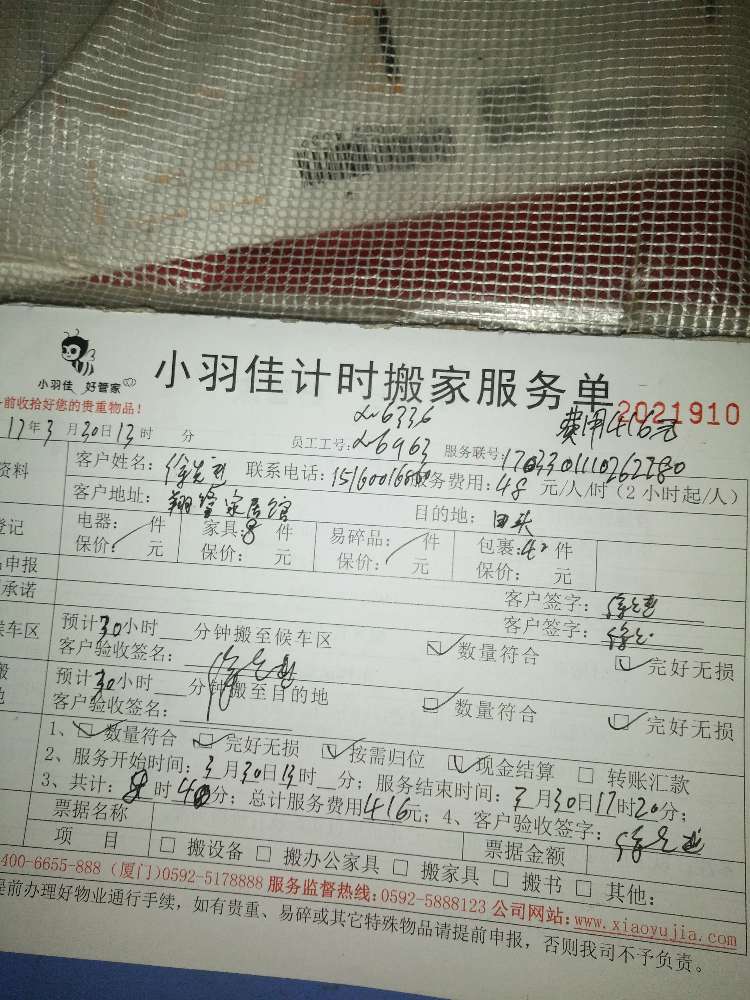 小羽佳 好管家
小羽佳计时搬家服务单
前收拾好您的贵重物品!
2021910
费用416元
17年3月30日13时 分
员工工号: 26336
26963
服务联号: 1703301110262780
资料
客户姓名: 联系电话: 服务费用:48元/人/时(2小时起/人)
客户地址: 家居馆 目的地:
登记
电器: 件 家具:8件 易碎品: 件 包裹:42件
保价: 元 保价: 元 保价: 元 保价: 元
申报
客户签字:
承诺
客户签字:
候车区
预计30小时 分钟搬至候车区
客户验收签名: 数量符合 完好无损
预计30小时 分钟搬至目的地
客户验收签名: 数量符合 完好无损
1、数量符合 完好无损 按需归位 现金结算 转账汇款
2、服务开始时间:3月30日13时 分;服务结束时间:3月30日17时20分;
3、共计: 时40分;总计服务费用416元;4、客户验收签字:
票据名称 票据金额
项 目 搬设备 搬办公家具 搬家具 搬书 其他:
400-6655-888(厦门)0592-5178888 服务监督热线:0592-5888123 公司网站:www.xiaoyujia.com
提前办理好物业通行手续,如有贵重、易碎或其它特殊物品请提前申报,否则我司不予负责。